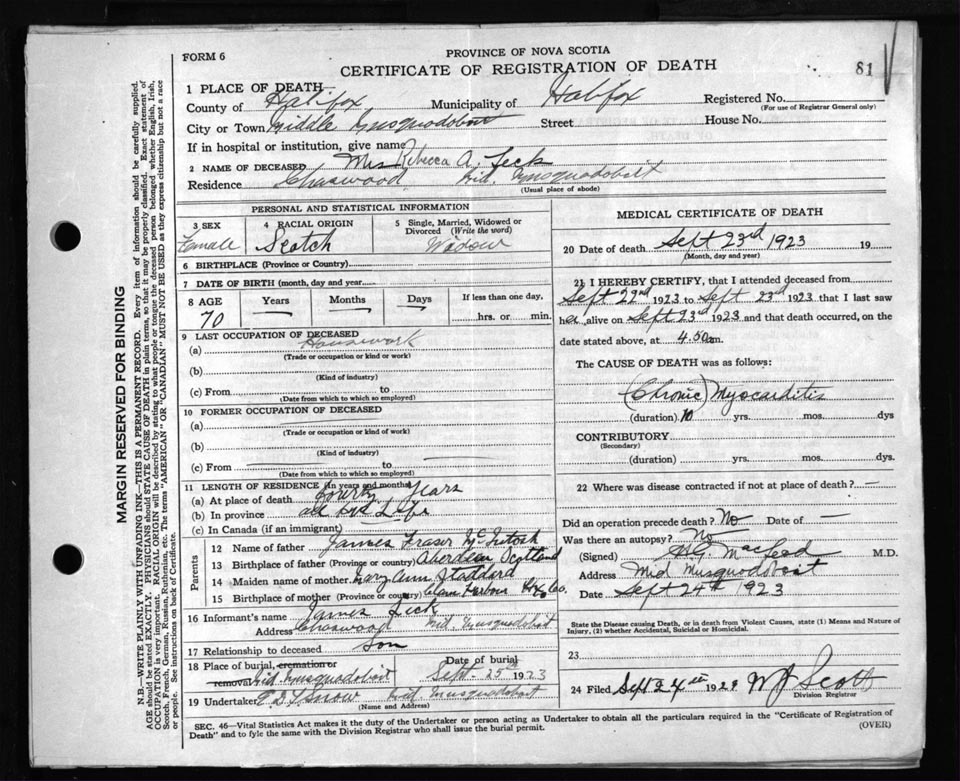 FORM 6
PROVINCE OF NOVA SCOTIA
CERTIFICATE OF REGISTRATION OF DEATH
81
1 PLACE OF DEATH
County of Halifax Municipality of Halifax Registered No.
(For use of Registrar General only)
City or Town Middle Musquodoboit Street House No.
If in hospital or institution, give name
2 NAME OF DECEASED Mrs Rebecca A.
Residence Chaswood Mid. Musquodoboit
(Usual place of abode)
PERSONAL AND STATISTICAL INFORMATION
3 SEX 4 RACIAL ORIGIN 5 Single, Married, Widowed or Divorced (Write the word)
Female Scotch Widow
6 BIRTHPLACE (Province or Country)
7 DATE OF BIRTH (month, day and year)
8 AGE Years Months Days If less than one day,
70 hrs. or min.
9 LAST OCCUPATION OF DECEASED
(a) Housework
(Trade or occupation or kind or work)
(b)
(Kind of industry)
(c) From to
(Date from which to which so employed)
10 FORMER OCCUPATION OF DECEASED
(a)
(Trade or occupation or kind of work)
(b)
(Kind of industry)
(c) From to
(Date from which to which so employed)
11 LENGTH OF RESIDENCE (In years and months)
(a) At place of death years
(b) In province all her Life
(c) In Canada (if an immigrant)
Parents
12 Name of father James Fraser McIntosh
13 Birthplace of father (Province or country) Aberdeen Scotland
14 Maiden name of mother Mary Ann Stoddard
15 Birthplace of mother (Province or country) Clam Harbour Hfx Co.
16 Informant's name James
Address Chaswood Mid. Musquodoboit
17 Relationship to deceased Son
18 Place of burial, cremation or removal Mid Musquodoboit Date of burial Sept. 25th 1923
19 Undertaker Snow Mid Musquodoboit
(Name and Address)
MEDICAL CERTIFICATE OF DEATH
20 Date of death Sept 23rd 1923 19
(Month, day and year)
21 I HEREBY CERTIFY, that I attended deceased from
Sept 22nd 1923 to Sept 23rd 1923 that I last saw
her alive on Sept 23rd 1923 and that death occurred, on the
date stated above, at 4.50 am.
The CAUSE OF DEATH was as follows:
(Chronic) Myocarditis
(duration) 10 yrs. mos. dys
CONTRIBUTORY
(Secondary)
(duration) yrs. mos. dys.
22 Where was disease contracted if not at place of death? —
Did an operation precede death? No Date of —
Was there an autopsy? No
(Signed) MacLeod M.D.
Address Mid Musquodoboit
Date Sept 24th 1923
State the Disease causing Death, or in death from Violent Causes, state (1) Means and Nature of Injury, (2) whether Accidental, Suicidal or Homicidal.
23
24 Filed Sept 24th 1923 W J Scott
Division Registrar
SEC. 46—Vital Statistics Act makes it the duty of the Undertaker or person acting as Undertaker to obtain all the particulars required in the "Certificate of Registration of
Death" and to fyle the same with the Division Registrar who shall issue the burial permit. (OVER)
MARGIN RESERVED FOR BINDING
N.B.—WRITE PLAINLY WITH UNFADING INK—THIS IS A PERMANENT RECORD. Every item of information should be carefully supplied.
AGE should be stated EXACTLY. PHYSICIANS should STATE CAUSE OF DEATH in plain terms, so that it may be properly classified. Exact statement of
OCCUPATION is very important. RACIAL ORIGIN will be described by stating to what people or tongue the deceased person belonged whether English, Irish,
Scotch, French, German, Russian, Ruthenian, etc. The terms "AMERICAN" OR "CANADIAN" MUST NOT BE USED as they express citizenship but not a race
or people. See instructions on back of Certificate.